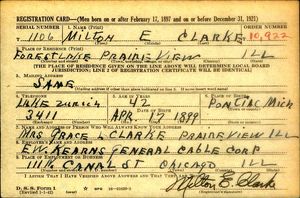 REGISTRATION CARD—(Men born on or after February 17, 1897 and on or before December 31, 1921)
SERIAL NUMBER
1. NAME (Print)
ORDER NUMBER
1106 MILTON E CLARKE 10,922
2. PLACE OF RESIDENCE (Print)
FOREST LAKE PRAIRIE VIEW ILL
(THE PLACE OF RESIDENCE GIVEN ON THE LINE ABOVE WILL DETERMINE LOCAL BOARD
JURISDICTION; LINE 2 OF REGISTRATION CERTIFICATE WILL BE IDENTICAL)
3. MAILING ADDRESS
SAME
4. TELEPHONE
5. AGE IN YEARS
6. PLACE OF BIRTH
LAKE ZURICH 42 PONTIAC MICH
DATE OF BIRTH
3411 APR 17 1899
7. NAME AND ADDRESS OF PERSON WHO WILL ALWAYS KNOW YOUR ADDRESS
MRS GRACE L CLARKE PRAIRIE VIEW ILL
8. EMPLOYER'S NAME AND ADDRESS
E W KEARNS GENERAL CABLE CORP
9. PLACE OF EMPLOYMENT OR BUSINESS
CANAL ST CHICAGO ILL
I AFFIRM THAT I HAVE VERIFIED ABOVE ANSWERS AND THAT THEY ARE TRUE.
D. S. S. Form 1
(Revised 1-1-42)
Milton E. Clarke